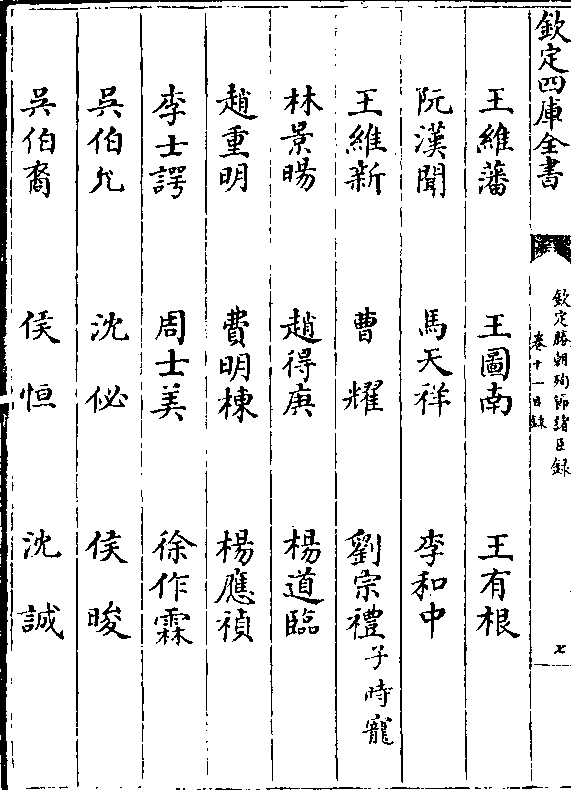 欽定四庫全書
欽定勝朝殉節諸臣録
卷十一目録
七
王維藩 王圖南 王有根
阮漢聞 馬天祥 李和中
王維新 曹耀 劉宗禮子時寵
林景暘 趙得庚 楊道臨
趙重明 費明棟 楊應禎
李士諤 周士美 徐作霖
吳伯允 沈佖 侯晙
吳伯裔 侯恒 沈誠